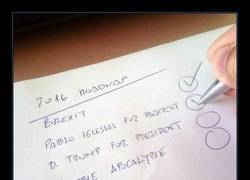 2016 ROADMAP
BREXIT
PABLO IGLESIAS FOR PRESIDENT
D. TRUMP FOR PRESIDENT
APOCALYPSE